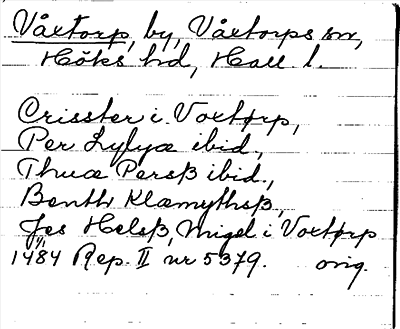 Våxtorp, by, Våxtorps sn,
Höks hd, Hall l.
Crisster i Voxtørp,
Per Lylyæ ibid.,
Thuæ Persß ibid.,
Benth Klæmythsß,
Jes Helsß, Migel i Voxtørp
1484 Rep. II nr 5379. orig.